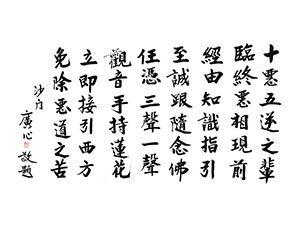 十惡五逆之輩
臨終惡相現前
經由知識指引
至誠跟隨念佛
任憑三聲一聲
觀音手持蓮花
立即接引西方
免除惡道之苦
沙門
廣心敬題